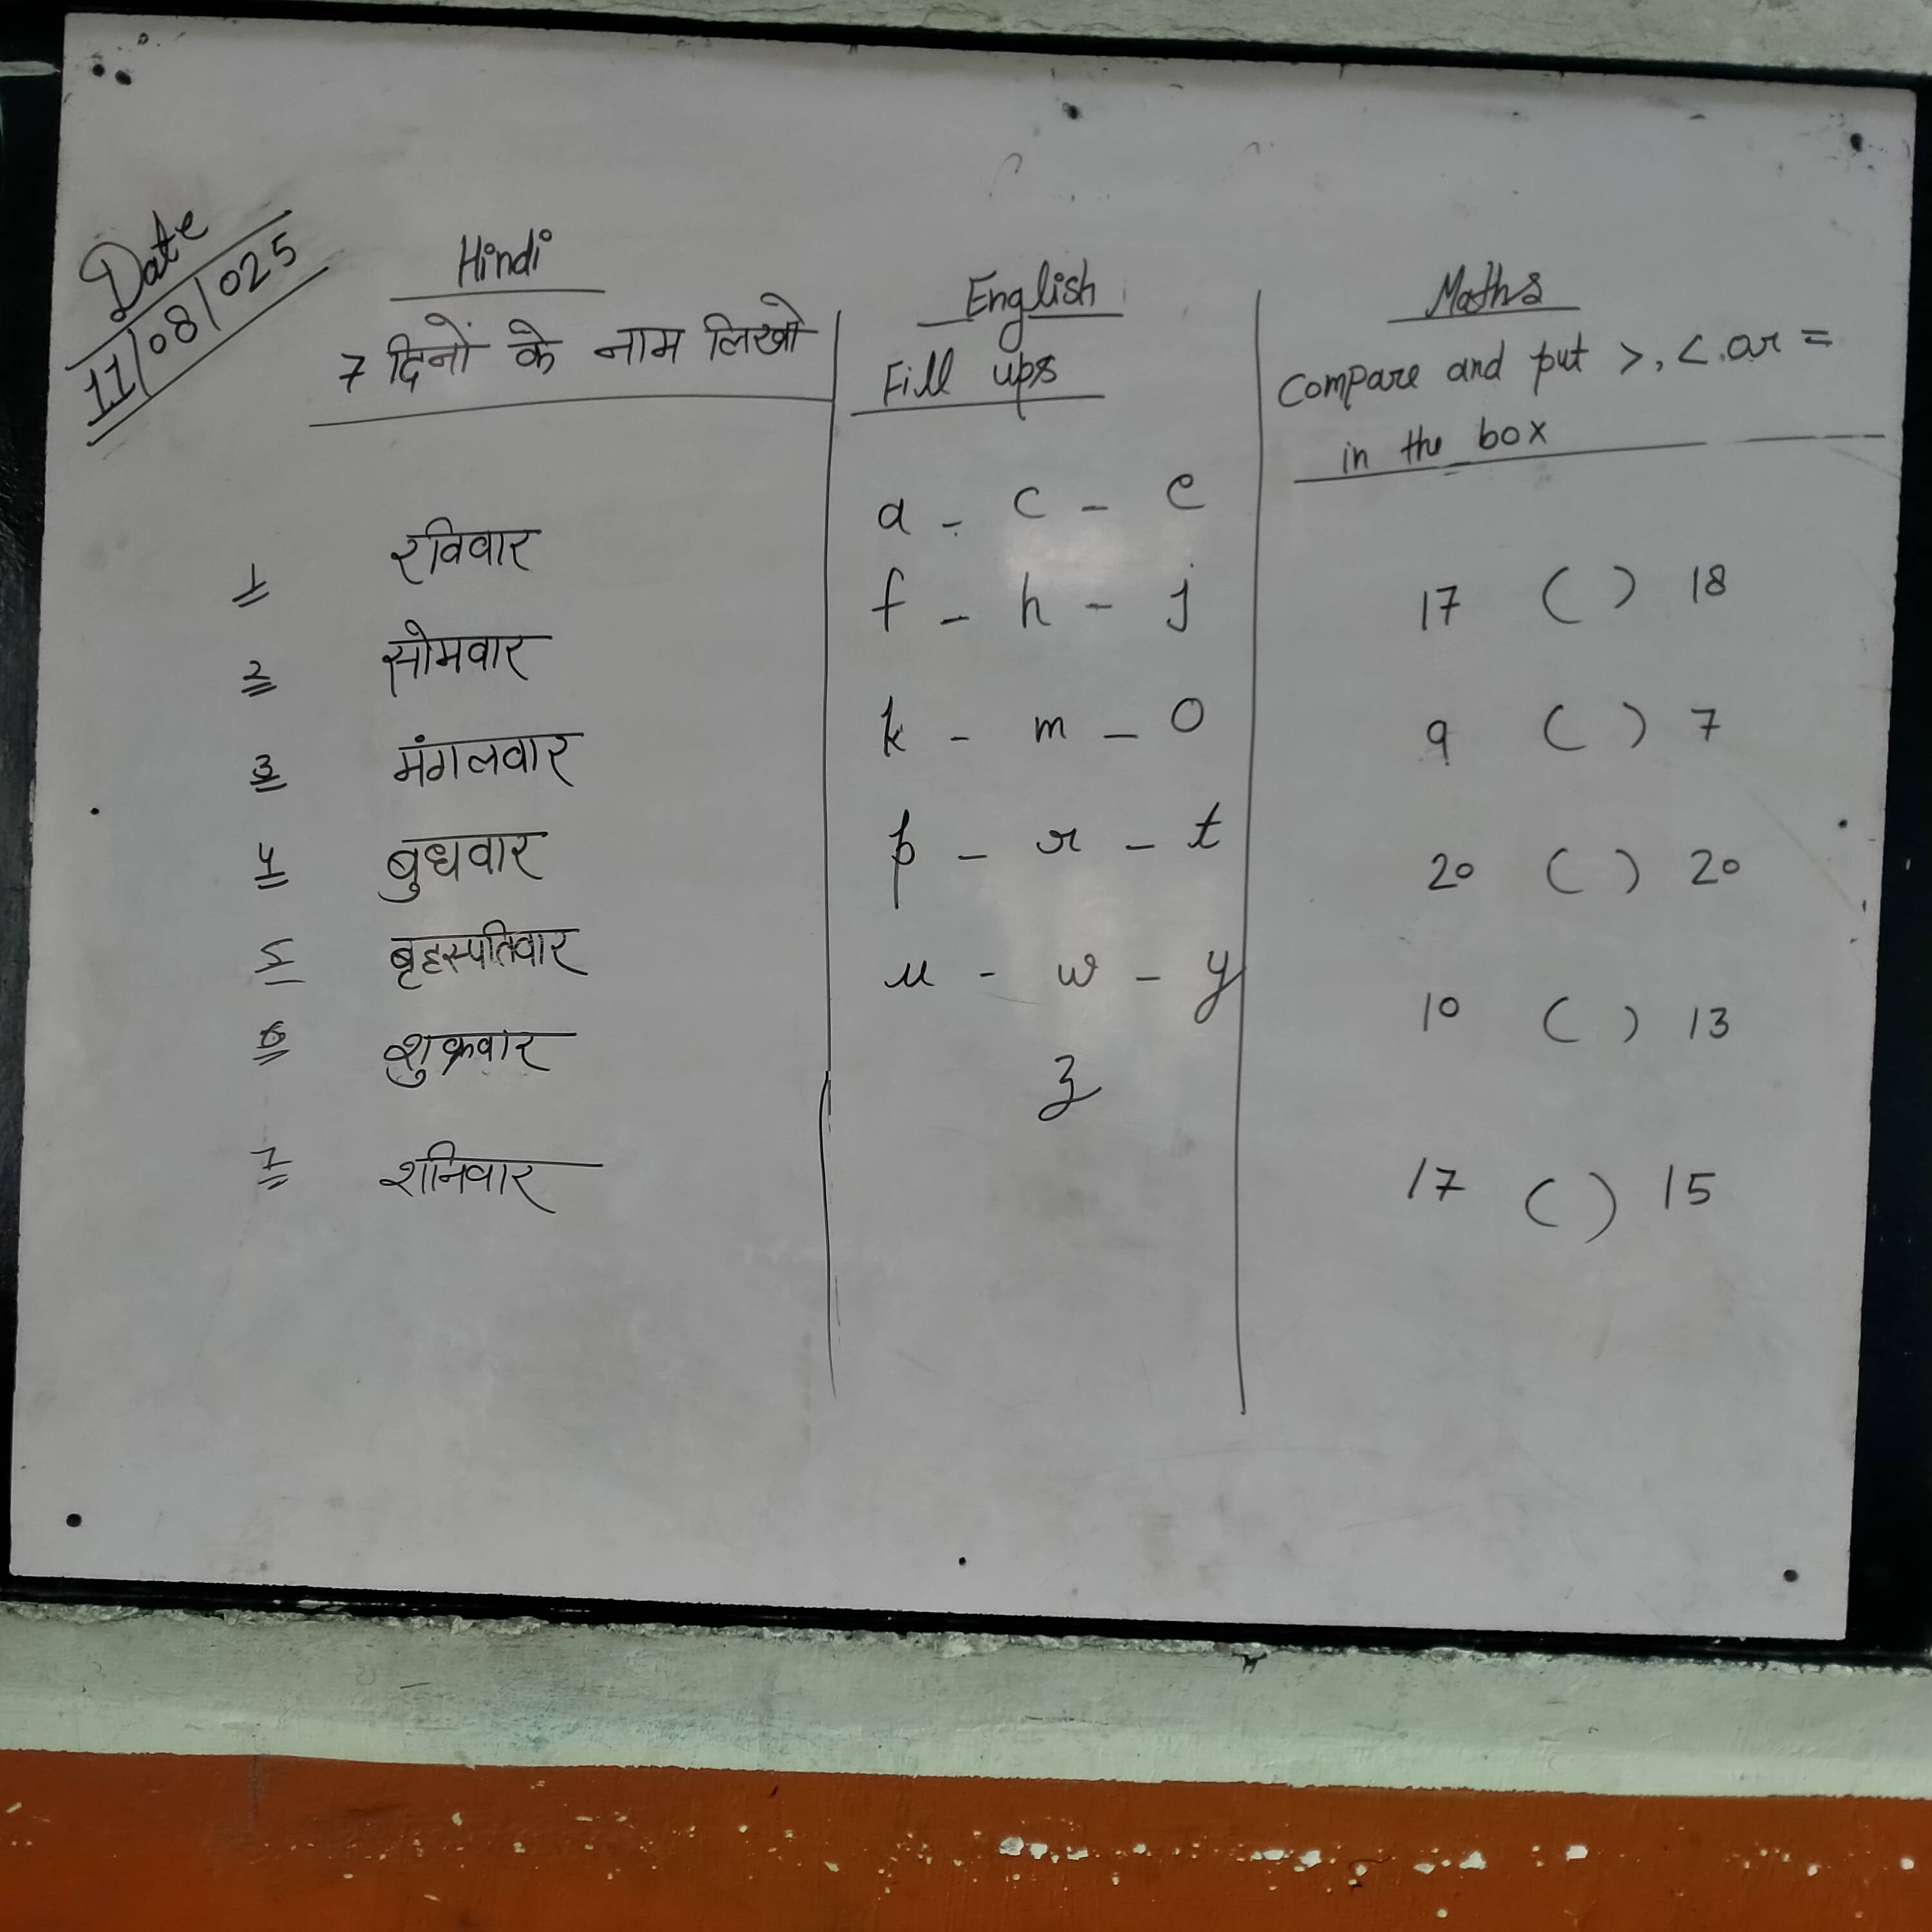 Date
11/08/025
Hindi
7 दिनों के नाम लिखो
1 रविवार
2 सोमवार
3 मंगलवार
4 बुधवार
5 बृहस्पतिवार
6 शुक्रवार
7 शनिवार
English
Fill ups
a - c - e
f - h - j
k - m - o
p - r - t
u - w - y
z
Maths
Compare and put >, < or =
in the box
17 ( ) 18
9 ( ) 7
20 ( ) 20
10 ( ) 13
17 ( ) 15